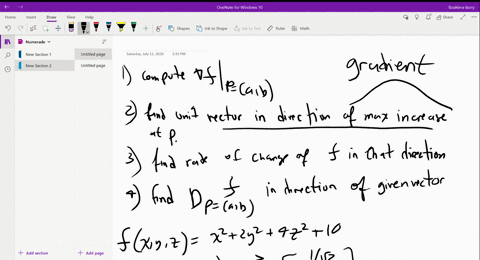 OneNote for Windows 10
Home Insert Draw View Help
Ink to Shape Ink to Text Ruler Math
Numerade
New Section 1
New Section 2
Untitled page
Untitled page
Saturday, July 11, 2020
gradient
1) compute ∇f|P=(a,b)
2) find unit vector in direction of max increase
at P.
3) find rate of change of f in that direction
4) find D P=(a,b) f in direction of given vector
f(x,y,z) = x²+2y²+4z²+10
+ Add section + Add page